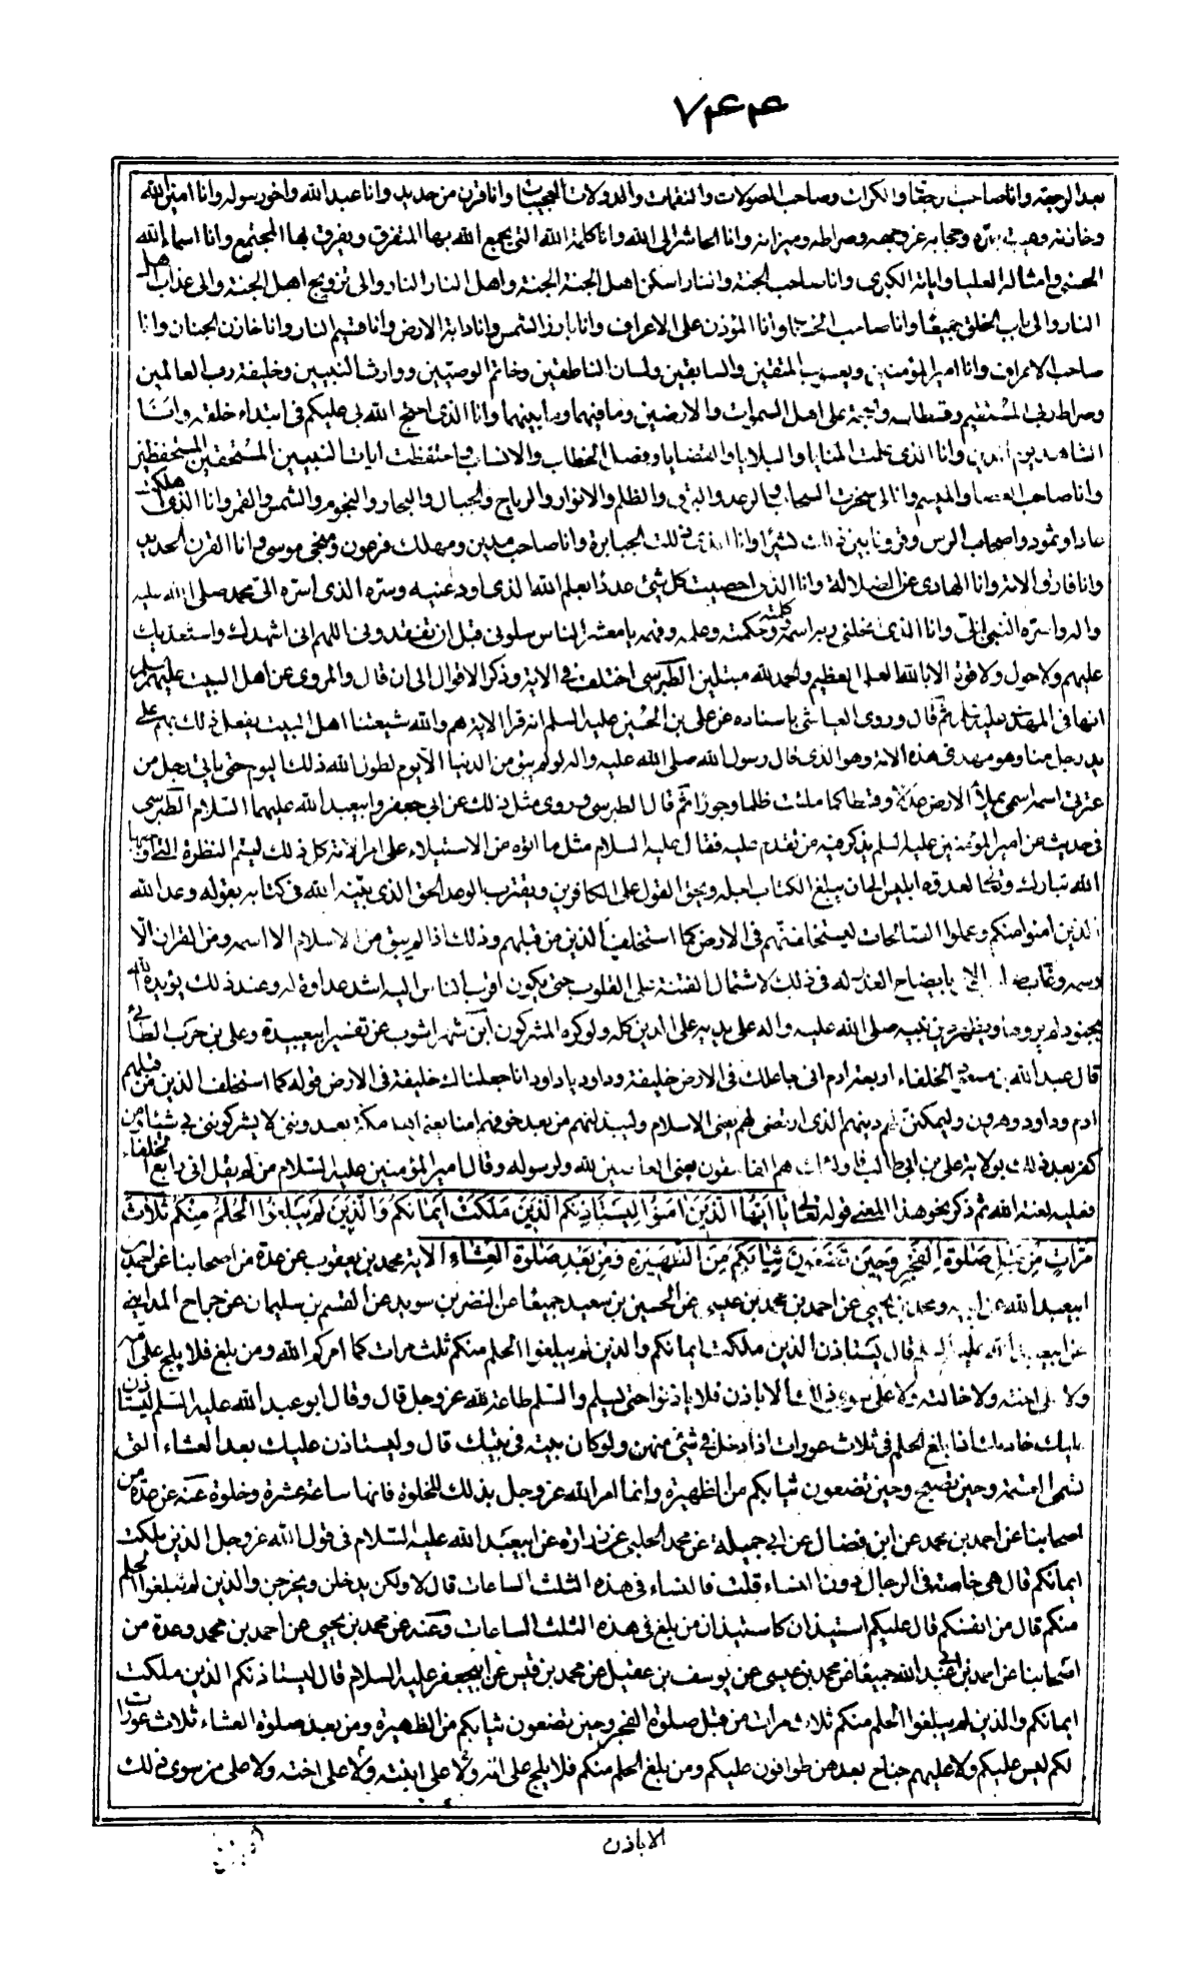 ٧٤٤
بعد الرجعة وانا صاحب الرجعات والكرات وصاحب الصولات والنقمات والدولات العجيبات وانا قرن من حديد وانا عبد الله واخو رسوله وانا امين الله
وخازنه وعيبة سره وحجابه ووجهه وصراطه وميزانه وانا الحاشر الى الله وانا كلمة الله التى يجمع الله بها المتفرق ويفرق بها المجتمع وانا اسماء الله
الحسنى وامثاله العليا واياته الكبرى وانا صاحب الجنة والنار اسكن اهل الجنة الجنة واهل النار النار والى تزويج اهل الجنة والى عذاب اهل
النار والى اياب الخلق جميعا وانا صاحب وانا المؤذن على الاعراف وانا بارز الشمس وانا دابة الارض وانا قسيم النار وانا خازن الجنان وانا
صاحب الاعراف وانا امير المؤمنين ويعسوب المتقين والسابقين ولسان الناطقين وخاتم الوصيين ووارث النبيين وخليفة رب العالمين
وصراط ربى المستقيم وقسطاسه والحجة على اهل السموات والارضين وما فيهما وما بينهما وانا الذى احتج الله بى عليكم فى ابتداء خلقه وانا
الشاهد يوم الدين وانا الذى علمت المنايا والبلايا والقضايا وفصل الخطاب والانساب واحتفظت ايات النبيين المستحقين المستحفظين
وانا صاحب العصا والميسم وانا الذى سخرت السحاب والرعد والبرق والظلم والانوار والرياح والجبال والبحار والنجوم والشمس والقمر وانا الذى اهلكت
عادا وثمود واصحاب الرس وقرونا بين ذلك كثيرا وانا الذى ذللت الجبابرة وانا صاحب مدين ومهلك فرعون ومنجى موسى وانا القرن الحديد
وانا فاروق الامة وانا الهادى عن الضلالة وانا الذى احصيت كل شئ عددا بعلم الله الذى اودعنيه وسره الذى اسره الى محمد صلى الله عليه
واله واسره النبى الى وانا الذى نحلنى ربى اسمه وكلمته وحكمته وعلمه وفهمه يا معشر الناس سلونى قبل ان تفقدونى اللهم انى اشهدك واستعديك
عليهم ولا حول ولا قوة الا بالله العلى العظيم والحمد لله متبعين الطبرسى اختلف فى الاية وذكر الاقوال الى ان قال والمروى عن اهل البيت عليهم السلم
انها فى المهدى عليه السلم قال وروى العياشى باسناده عن على بن الحسين عليه السلم انه قرا الاية هم والله شيعتنا اهل البيت يفعل ذلك بهم على
يد رجل منا وهو مهدى هذه الامة وهو الذى قال رسول الله صلى الله عليه واله لو لم يبق من الدنيا الا يوم لطول الله ذلك اليوم حتى ياتى رجل من
عترتى اسمه اسمى يملأ الارض عدلا وقسطا كما ملئت ظلما وجورا ثم قال الطبرسى وروى مثل ذلك عن ابى جعفر وابيعبد الله عليهما السلام الطبرسى
فى حديث عن امير المؤمنين عليه السلم يذكر فيه من تقدم عليه فقال عليه السلام مثل ما اتوه من الاستيلاء على امر الامة كل ذلك ليتم النظرة التى اوجبها
الله تبارك وتعالى لعدوه ابليس الى ان يبلغ الكتاب اجله ويحق القول على الكافرين ويقترب الوعد الحق الذى بينه الله فى كتابه بقوله وعد الله
الذين امنوا منكم وعملوا الصالحات ليستخلفنهم فى الارض كما استخلف الذين من قبلهم وذلك اذا لم يبق من الاسلام الا اسمه ومن القران الا
رسمه وغاب صاحب الامر بايضاح العذر له فى ذلك لاشتمال الفتنة على القلوب حتى يكون اقرب الناس اليه اشد عداوة له وعند ذلك يؤيده الله
بجنود لم يروها ويظهر دين نبيه صلى الله عليه واله على يديه على الدين كله ولو كره المشركون ابن شهر اشوب عن تفسير ابيعبيدة وعلى بن حرب الطائى
قال عبد الله بن مسعود الخلفاء اربعة ادم انى جاعلك فى الارض خليفة وداود يا داود انا جعلناك خليفة فى الارض قوله كما استخلف الذين من قبلهم
ادم وداود وهرون وليمكنن لهم دينهم الذى ارتضى لهم يعنى الاسلام وليبدلنهم من بعد خوفهم امنا يعنى اهل مكة يعبدوننى لا يشركون بى شيئا ومن
كفر بعد ذلك بولاية على بن ابى طالب فاولئك هم الفاسقون يعنى العاصين لله ولرسوله وقال امير المؤمنين عليه السلام من لم يقل انى رابع الخلفاء
فعليه لعنة الله ثم ذكر نحو هذا المعنى قوله تعالى يا ايها الذين امنوا ليستاذنكم الذين ملكت ايمانكم والذين لم يبلغوا الحلم منكم ثلاث
مرات من قبل صلوة الفجر وحين تضعون ثيابكم من الظهيرة ومن بعد صلوة العشاء الاية محمد بن يعقوب عن عدة من اصحابنا عن احمد بن
ابيعبد الله عن ابيه ومحمد بن يحيى عن احمد بن محمد بن عيسى عن الحسين بن سعيد جميعا عن النضر بن سويد عن القسم بن سليمان عن جراح المداينى
عن ابيعبد الله عليه السلم قال يستاذن الذين ملكت ايمانكم والذين لم يبلغوا الحلم منكم ثلث مرات كما امركم الله ومن بلغ فلا يلج على امه
ولا على اخته ولا خالته ولا على سوى ذلك الا باذن فلا ياذنوا حتى يسلم والسلم طاعة لله عز وجل قال وقال ابو عبد الله عليه السلم ليستاذن
عليك خادمك اذا بلغ الحلم فى ثلاث عورات اذا دخل فى شئ منهن ولو كان بيته فى بيتك قال وليستاذن عليك بعد العشاء التى
تسمى العتمة وحين تصبح وحين تضعون ثيابكم من الظهيرة وانما امر الله عز وجل بذلك للخلوة فانها ساعة غرة وخلوة عنه عن عدة من
اصحابنا عن احمد بن محمد عن ابن فضال عن ابى جميلة عن محمد الحلبى عن زرارة عن ابيعبد الله عليه السلام فى قول الله عز وجل الذين ملكت
ايمانكم قال هى خاصة فى الرجال دون النساء قلت فالنساء فى هذه الثلث الساعات قال لا ولكن يدخلن ويخرجن والذين لم يبلغوا الحلم
منكم قال من انفسكم قال عليكم استيذان كاستيذان من بلغ فى هذه الثلث الساعات وعنه عن محمد بن يحيى عن احمد بن محمد وعدة من
اصحابنا عن احمد بن ابى عبد الله جميعا عن محمد بن عيسى عن يوسف بن عقيل عن محمد بن قيس عن ابيجعفر عليه السلام قال ليستاذنكم الذين ملكت
ايمانكم والذين لم يبلغوا الحلم منكم ثلاث مرات من قبل صلوة الفجر وحين تضعون ثيابكم من الظهيرة ومن بعد صلوة العشاء ثلاث عورات
لكم ليس عليكم ولا عليهم جناح بعدهن طوافون عليكم ومن بلغ الحلم منكم فلا يلج على امه ولا على ابنته ولا على اخته ولا على من سوى ذلك
الا باذن